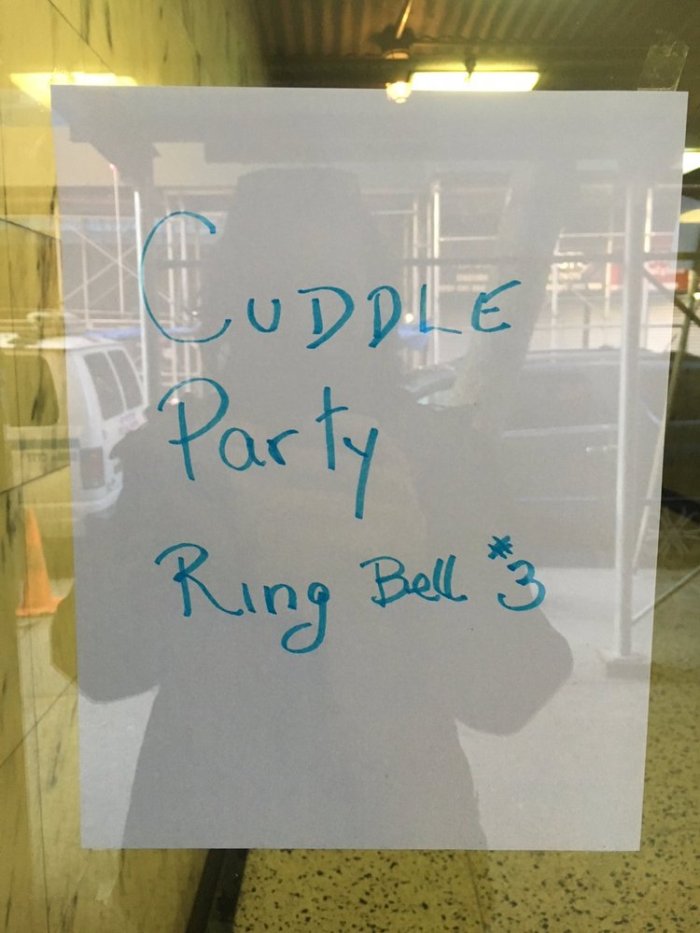 CUDDLE
Party
Ring Bell #3